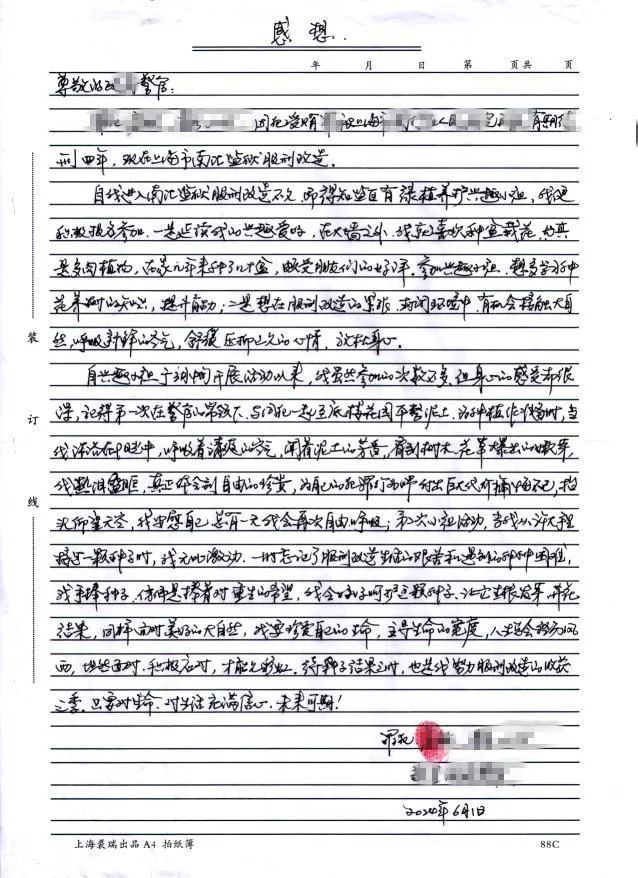 感想.
年 月 日 第 页共 页
尊敬的 警官:
因犯 有期徒
刑四年,现在上海市南汇监狱服刑改造。
自我进入南汇监狱服刑改造不久,即得知监区有绿植养护兴趣小组,我便
积极报名参加.一是延续我的兴趣爱好,在大墙之外,我就喜欢种盆栽花,尤其
是多肉植物,在家几年来种了几十盆,邮受朋友们的好评.参加兴趣小组,想多学习种
花养树的知识,提升自我;二是想在服刑改造的 封闭环境中,有机会接触大自
然,呼吸新鲜的空气,舒缓压抑已久的心情,放松身心。
自兴趣小组于 开展活动以来,我虽然参加的次数不多,但身心的感受却很
深,记得第一次在警官的带领下,与同犯一起至底楼花园平整泥土,为种植作准备时,当
我沐浴在阳光中,呼吸着清爽的空气,闻着泥土的芳香,看到树木、花草爆出的嫩芽,
我热泪盈眶,真正体会到自由的珍贵,为自己的犯罪行为所付出巨大代价痛悔不已,抬
头仰望天空,我告慰自己,总有一天我会再次自由呼吸;第二次小组活动,当我从 手里
接过一颗种子时,我无比激动.一时忘记了服刑改造生活的艰苦和遇到的种种困难,
我手捧种子,仿佛是捧着对重生的希望,我会好好呵护这颗种子,让它生根发芽、开花
结果,同样面对美好的大自然,我要珍爱自己的生命,主导生命的宽度,人生总会 风
雨,坦然面对、积极应对,才能见彩虹.待种子结果之时,也是我努力服刑改造的收获
之季.只要对生命、对生活充满信心,未来可期!
罪犯
2024年6月1日
装
订
线
上海裘瑞出品A4 拍纸簿 88C